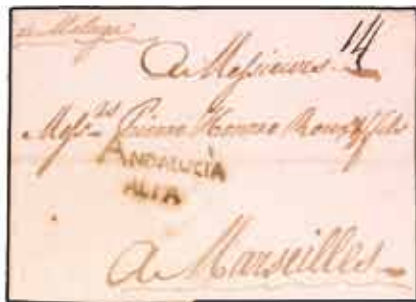 de Malaga
14
A Messieurs
Mess.rs Pierre Honoré Roux & fils
ANDALUCIA
ALTA
A Marseilles